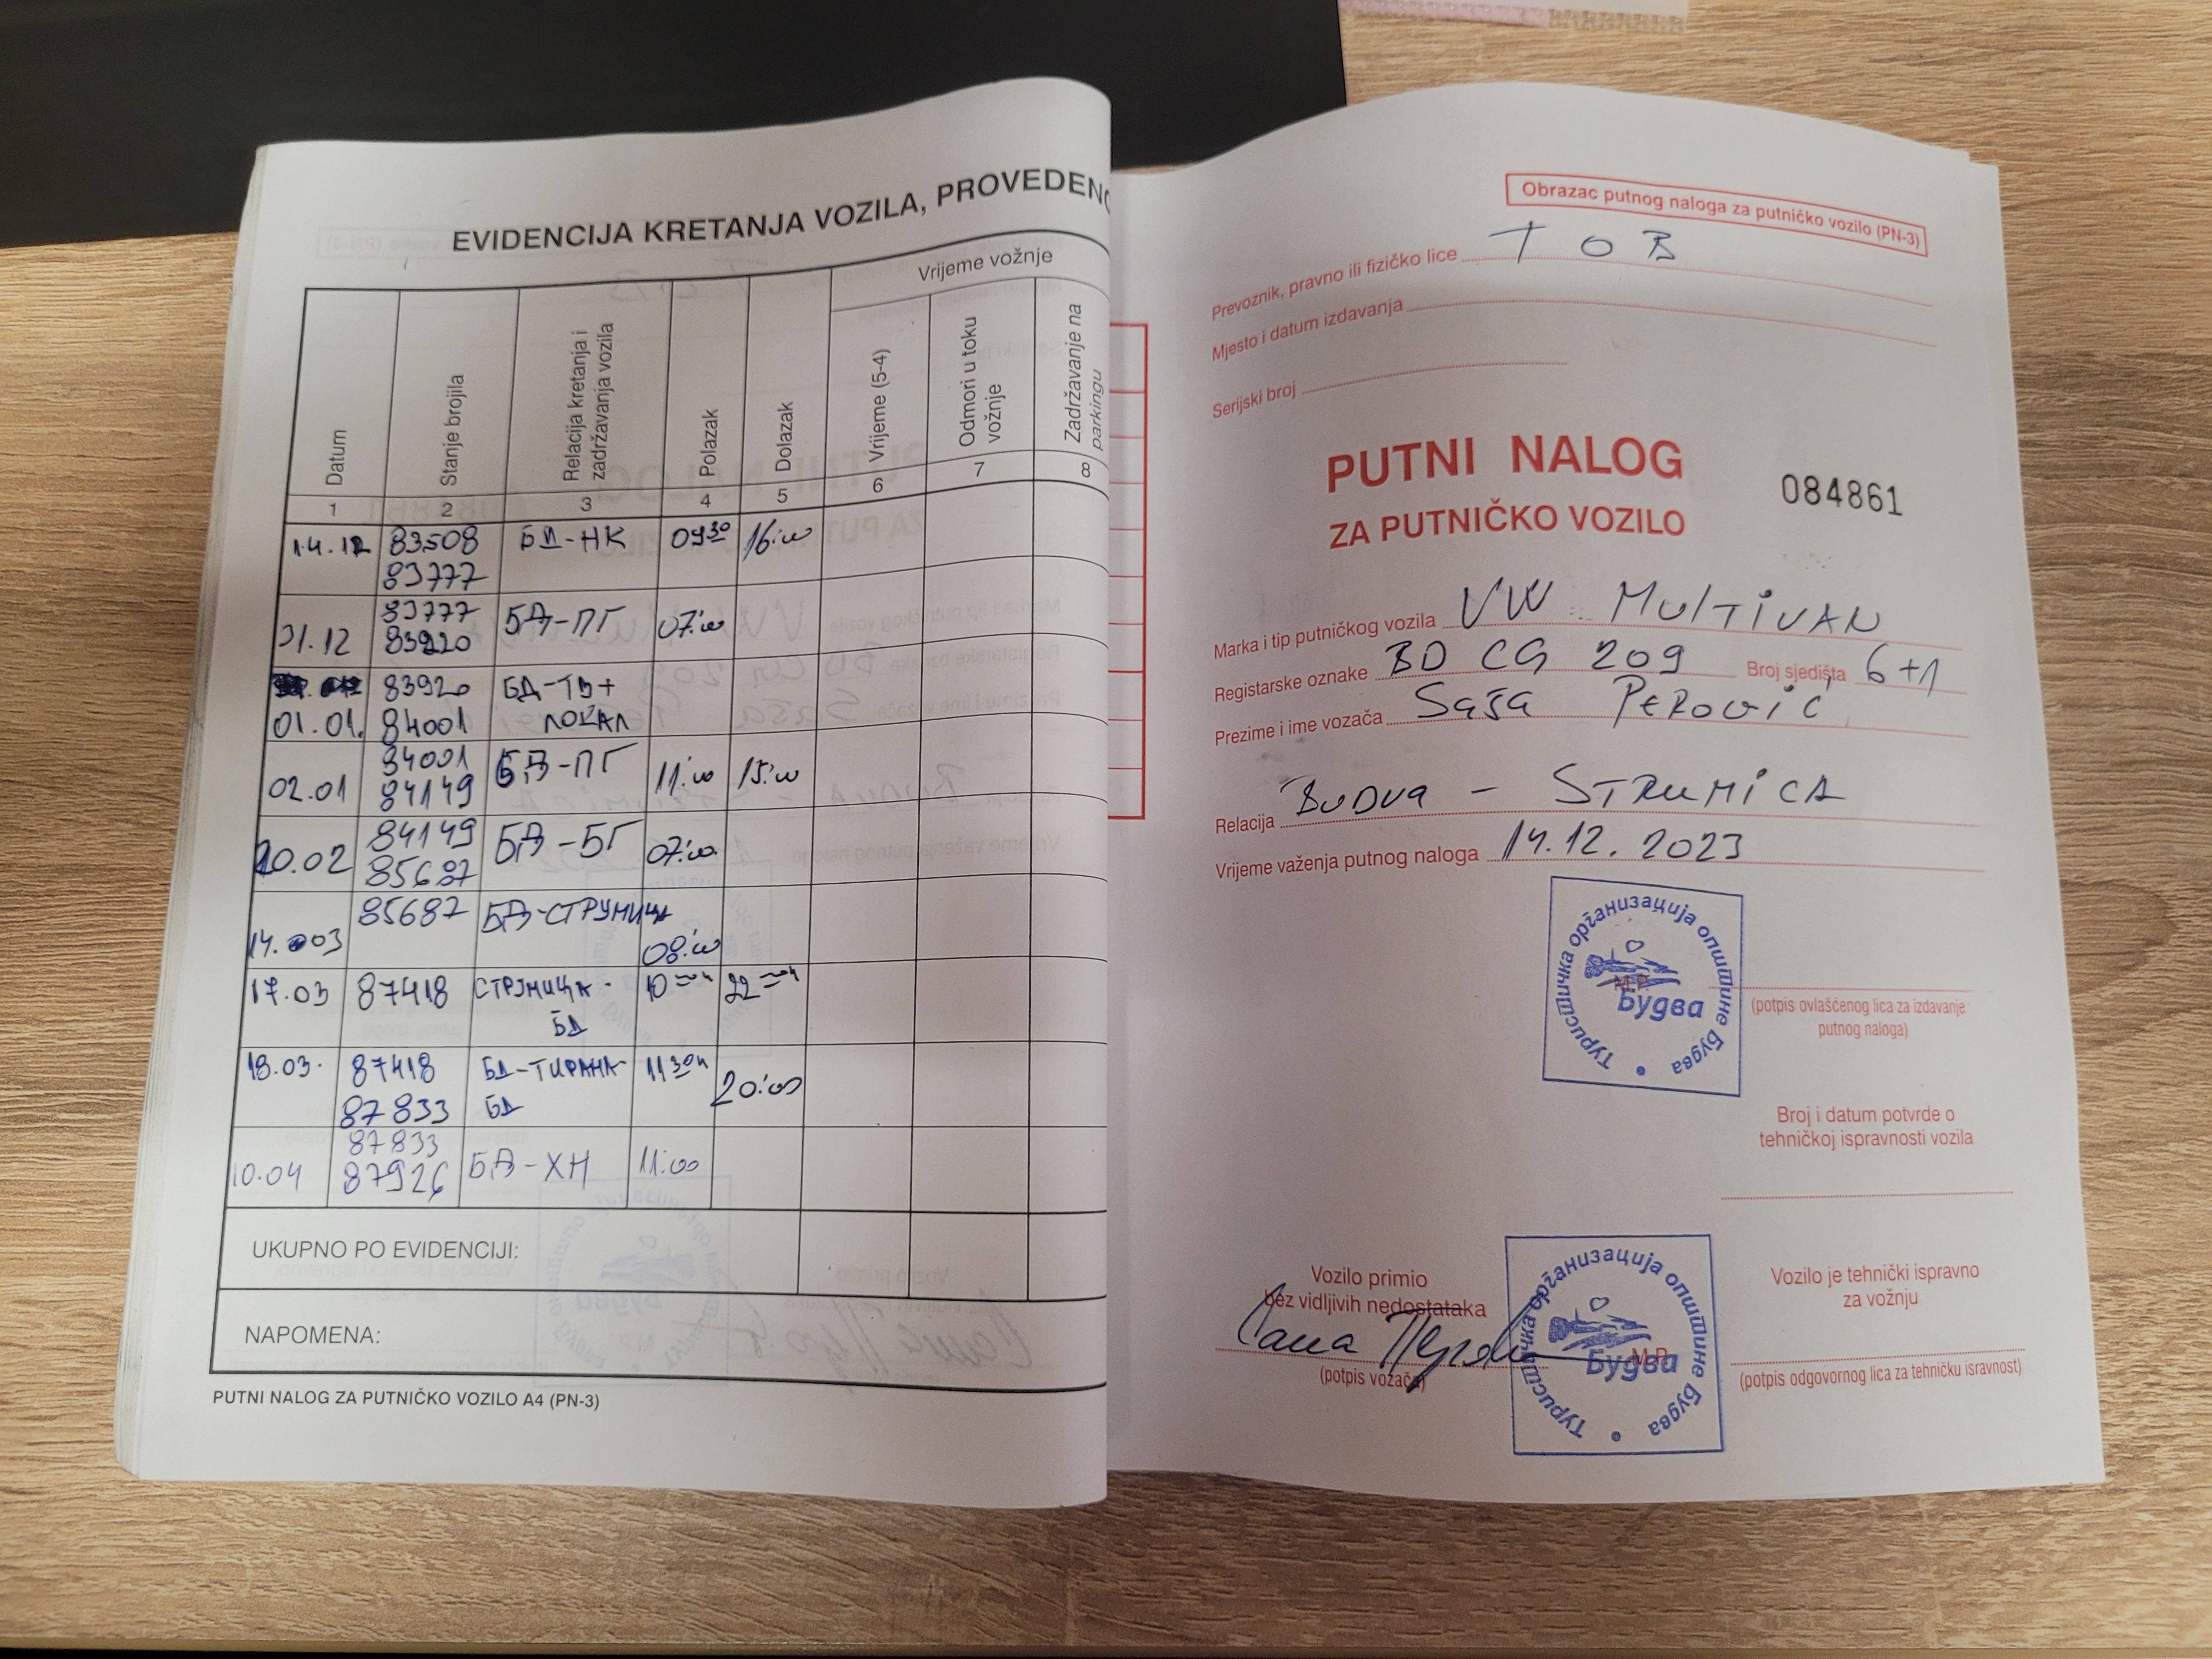 EVIDENCIJA KRETANJA VOZILA, PROVEDENO
Vrijeme vožnje
Datum
Stanje brojila
Relacija kretanja i zadržavanja vozila
Polazak
Dolazak
Vrijeme (5-4)
Odmori u toku vožnje
Zadržavanje na parkingu
1 2 3 4 5 6 7 8
14.12 83508 БД-НК 09³⁰ 16:00
83777
83777 БД-ПГ 07:00
31.12 83920
83920 БД-ТВ+
01.01. 84001 ЛОКАЛ
84001 БД-ПГ 11:00 15:00
02.01 84149
84149 БД-БГ 07:00
20.02 85687
85687 БД-СТРУМИЦА
14.03 08:00
17.03 87418 СТРУМИЦА- 10 22
БД
18.03. 87418 БД-ТИРАНА- 11³⁰ч
87833 БД 20:00
87833
10.04 87926 БД-ХН 11:00
UKUPNO PO EVIDENCIJI:
NAPOMENA:
PUTNI NALOG ZA PUTNIČKO VOZILO A4 (PN-3)
Obrazac putnog naloga za putničko vozilo (PN-3)
Prevoznik, pravno ili fizičko lice TOB
Mjesto i datum izdavanja
Serijski broj
PUTNI NALOG
084861
ZA PUTNIČKO VOZILO
Marka i tip putničkog vozila VW MULTIVAN
Registarske oznake BD CG 209 Broj sjedišta 6+1
Prezime i ime vozača Saša Perović
Relacija BUDVA - STRUMICA
Vrijeme važenja putnog naloga 14.12.2023
Туристичка организација општине Будва
Будва
M.P.
(potpis ovlašćenog lica za izdavanje
putnog naloga)
Broj i datum potvrde o
tehničkoj ispravnosti vozila
Vozilo primio
bez vidljivih nedostataka
Саша Перовић
(potpis vozača)
Туристичка организација општине Будва
Будва
M.P.
Vozilo je tehnički ispravno
za vožnju
(potpis odgovornog lica za tehničku isravnost)